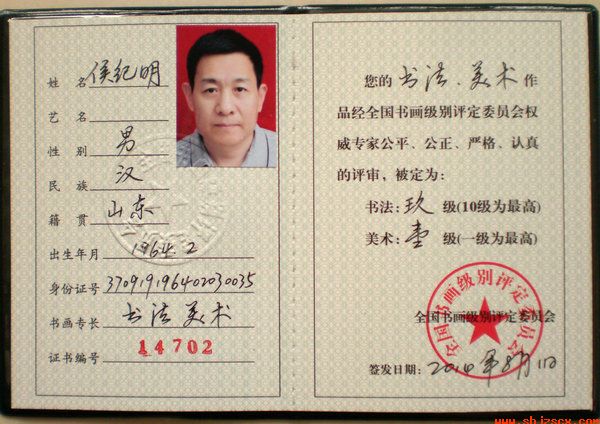 姓 名 侯纪明
艺 名
性 别 男
民 族 汉
籍 贯 山东
出生年月 1964.2
身份证号 370919196402030035
书画专长 书法 美术
证书编号 14702
您的 书法、美术 作
品经全国书画级别评定委员会权
威专家公平、公正、严格、认真
的评审，被定为：
书法：玖 级(10级为最高)
美术：壹 级(一级为最高)
全国书画级别评定委员会
全国书画级别评定委员会
签发日期： 年8月1日
www.shjzscx.com